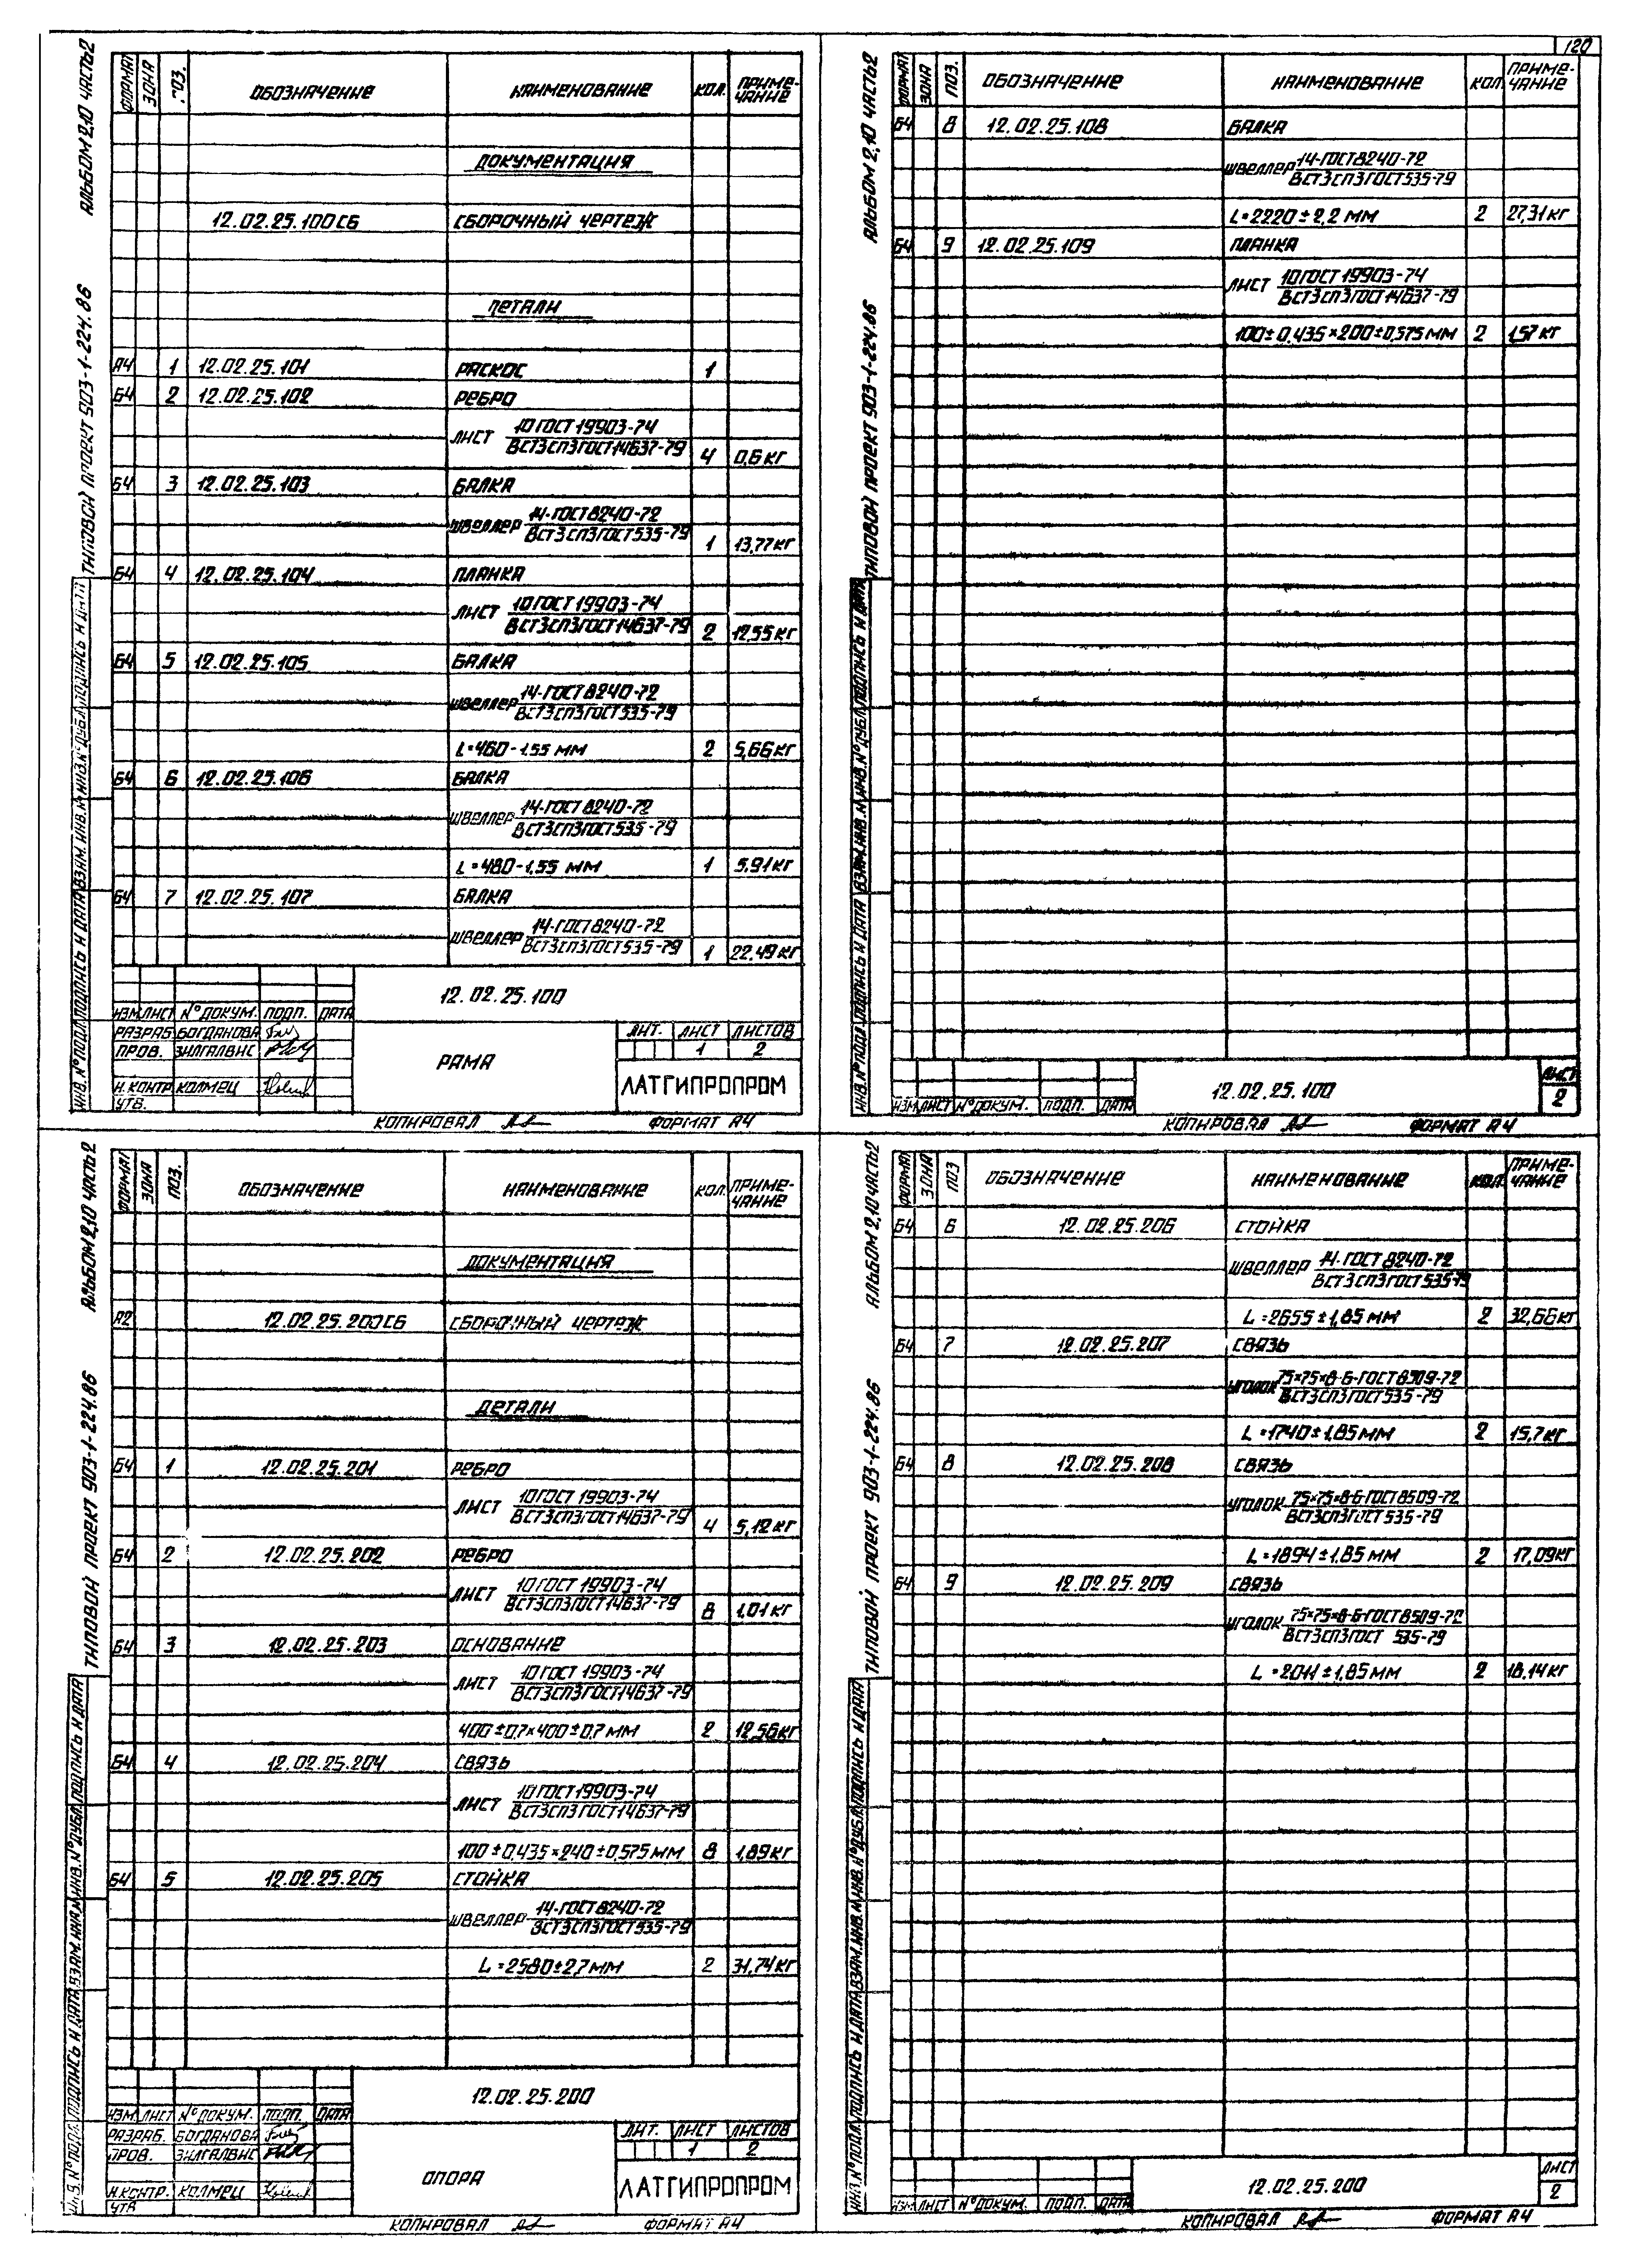 120
АЛЬБОМ 2.10 ЧАСТЬ 2
ТИПОВОЙ ПРОЕКТ 903-1-224.86
ФОРМАТ ЗОНА ПОЗ. ОБОЗНАЧЕНИЕ НАИМЕНОВАНИЕ КОЛ. ПРИМЕ-
ЧАНИЕ
ДОКУМЕНТАЦИЯ
12.02.25.100СБ СБОРОЧНЫЙ ЧЕРТЕЖ
ДЕТАЛИ
А4 1 12.02.25.101 РАСКОС 1
Б4 2 12.02.25.102 РЕБРО
ЛИСТ 10 ГОСТ 19903-74
ВСТ3СП3ГОСТ14637-79 4 0,6 КГ
Б4 3 12.02.25.103 БАЛКА
ШВЕЛЛЕР 14-ГОСТ 8240-72
ВСТ3СП3ГОСТ535-79 1 13,77 КГ
Б4 4 12.02.25.104 ПЛАНКА
ЛИСТ 10 ГОСТ 19903-74
ВСТ3СП3ГОСТ14637-79 2 12,55 КГ
Б4 5 12.02.25.105 БАЛКА
ШВЕЛЛЕР 14-ГОСТ 8240-72
ВСТ3СП3ГОСТ535-79
L=460-1.55 ММ 2 5,66 КГ
Б4 6 12.02.25.106 БАЛКА
ШВЕЛЛЕР 14-ГОСТ 8240-72
ВСТ3СП3ГОСТ535-79
L=480-1,55 ММ 1 5,91 КГ
Б4 7 12.02.25.107 БАЛКА
ШВЕЛЛЕР 14-ГОСТ 8240-72
ВСТ3СП3ГОСТ535-79 1 22,49 КГ
12.02.25.100
ИЗМ. ЛИСТ N° ДОКУМ. ПОДП. ДАТА
РАЗРАБ. БОГДАНОВА
ПРОВ. ЗИЛГАЛВИС
Н.КОНТР. КОЛМЕЦ
УТВ.
РАМА
ЛИТ. ЛИСТ ЛИСТОВ
1 2
ЛАТГИПРОПРОМ
ИНВ. N° ПОДЛ. ПОДПИСЬ И ДАТА ВЗАМ. ИНВ. N° ИНВ. N° ДУБЛ. ПОДПИСЬ И ДАТА
КОПИРОВАЛ ФОРМАТ А4
АЛЬБОМ 2.10 ЧАСТЬ 2
ТИПОВОЙ ПРОЕКТ 903-1-224.86
ФОРМАТ ЗОНА ПОЗ. ОБОЗНАЧЕНИЕ НАИМЕНОВАНИЕ КОЛ. ПРИМЕ-
ЧАНИЕ
Б4 8 12.02.25.108 БАЛКА
ШВЕЛЛЕР 14-ГОСТ 8240-72
ВСТ3СП3ГОСТ535-79
L=2220±2,2 ММ 2 27,31 КГ
Б4 9 12.02.25.109 ПЛАНКА
ЛИСТ 10 ГОСТ 19903-74
ВСТ3СП3ГОСТ14637-79
100±0,435×200±0,575 ММ 2 1,57 КГ
12.02.25.100
ЛИСТ
2
ИЗМ. ЛИСТ N° ДОКУМ. ПОДП. ДАТА
ИНВ. N° ПОДЛ. ПОДПИСЬ И ДАТА ВЗАМ. ИНВ. N° ИНВ. N° ДУБЛ. ПОДПИСЬ И ДАТА
КОПИРОВАЛ ФОРМАТ А4
АЛЬБОМ 2.10 ЧАСТЬ 2
ТИПОВОЙ ПРОЕКТ 903-1-224.86
ФОРМАТ ЗОНА ПОЗ. ОБОЗНАЧЕНИЕ НАИМЕНОВАНИЕ КОЛ. ПРИМЕ-
ЧАНИЕ
ДОКУМЕНТАЦИЯ
А2 12.02.25.200СБ СБОРОЧНЫЙ ЧЕРТЕЖ
ДЕТАЛИ
Б4 1 12.02.25.201 РЕБРО
ЛИСТ 10 ГОСТ 19903-74
ВСТ3СП3ГОСТ14637-79 4 5,12 КГ
Б4 2 12.02.25.202 РЕБРО
ЛИСТ 10 ГОСТ 19903-74
ВСТ3СП3ГОСТ14637-79 8 1,01 КГ
Б4 3 12.02.25.203 ОСНОВАНИЕ
ЛИСТ 10 ГОСТ 19903-74
ВСТ3СП3ГОСТ14637-79
400±0,7×400±0,7 ММ 2 12,56 КГ
Б4 4 12.02.25.204 СВЯЗЬ
ЛИСТ 10 ГОСТ 19903-74
ВСТ3СП3ГОСТ14637-79
100±0,435×240±0,575 ММ 8 1,89 КГ
Б4 5 12.02.25.205 СТОЙКА
ШВЕЛЛЕР 14-ГОСТ 8240-72
ВСТ3СП3ГОСТ535-79
L=2580±2,7 ММ 2 31,74 КГ
12.02.25.200
ИЗМ. ЛИСТ N° ДОКУМ. ПОДП. ДАТА
РАЗРАБ. БОГДАНОВА
ПРОВ. ЗИЛГАЛВИС
Н.КОНТР. КОЛМЕЦ
УТВ
ОПОРА
ЛИТ. ЛИСТ ЛИСТОВ
1 2
ЛАТГИПРОПРОМ
ИНВ. N° ПОДЛ. ПОДПИСЬ И ДАТА ВЗАМ. ИНВ. N° ИНВ. N° ДУБЛ. ПОДПИСЬ И ДАТА
КОПИРОВАЛ ФОРМАТ А4
АЛЬБОМ 2.10 ЧАСТЬ 2
ТИПОВОЙ ПРОЕКТ 903-1-224.86
ФОРМАТ ЗОНА ПОЗ ОБОЗНАЧЕНИЕ НАИМЕНОВАНИЕ КОЛ. ПРИМЕ-
ЧАНИЕ
Б4 6 12.02.25.206 СТОЙКА
ШВЕЛЛЕР 14-ГОСТ 8240-72
ВСТ3СП3ГОСТ535-79
L=2655±1,85 ММ 2 32,66 КГ
Б4 7 12.02.25.207 СВЯЗЬ
УГОЛОК 75×75×8-Б-ГОСТ 8509-72
ВСТ3СП3ГОСТ535-79
L=1740±1,85 ММ 2 15,7 КГ
Б4 8 12.02.25.208 СВЯЗЬ
УГОЛОК 75×75×8-Б-ГОСТ 8509-72
ВСТ3СП3ГОСТ 535-79
L=1894±1,85 ММ 2 17,09 КГ
Б4 9 12.02.25.209 СВЯЗЬ
УГОЛОК 75×75×8-Б-ГОСТ 8509-72
ВСТ3СП3ГОСТ 535-79
L=2011±1,85 ММ 2 18,14 КГ
12.02.25.200
ЛИСТ
2
ИЗМ. ЛИСТ N° ДОКУМ. ПОДП. ДАТА
ИНВ. N° ПОДЛ. ПОДПИСЬ И ДАТА ВЗАМ. ИНВ. N° ИНВ. N° ДУБЛ. ПОДПИСЬ И ДАТА
КОПИРОВАЛ ФОРМАТ А4